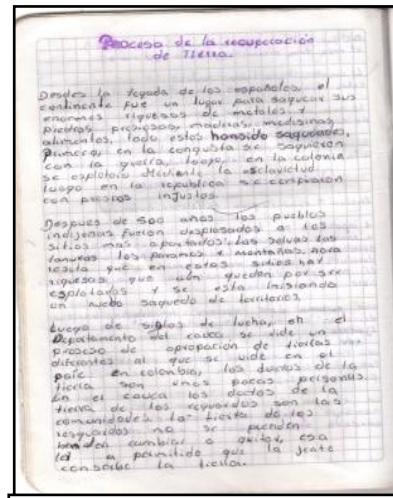 Proceso de la recuperación
de Tierra.
Desdes la llegada de los españoles el
continente fue un lugar para saquear sus
enormes riquesas de metales y
piedras presiosas, maderas, medisinas,
alimentos, todo estos han sido saqueados,
primero, en la conquista se saquearon
con la guerra, luego en la colonia
se esplotaro Mediante la esclavictud
luego en la republica se compraron
con presios injustos
Despues de 500 años los pueblos
indigenas fueron desplasados a los
sitios mas apartados, las selvas las
llanuras los paramos y montañas, hora
resulta que en estos sitios hay
riquesas que aún queden por ser
esplotados y se esta inisiando
un nuebo saquedo de territorios.
Luego de siglos de lucha, en el
Departamento del cauca se vide un
proseso de apropacion de tierras
diferentes al que se vide en el
país en colombia, los dueños de la
tierra son unos pocas personas.
En el cauca los dueños de la
tierra de los resguardos son las
comunidades la tierra de los
resguardos no se pueden
benden cambiar o quitar, esa
ley a permitido que la jente
conserbe la tierra.